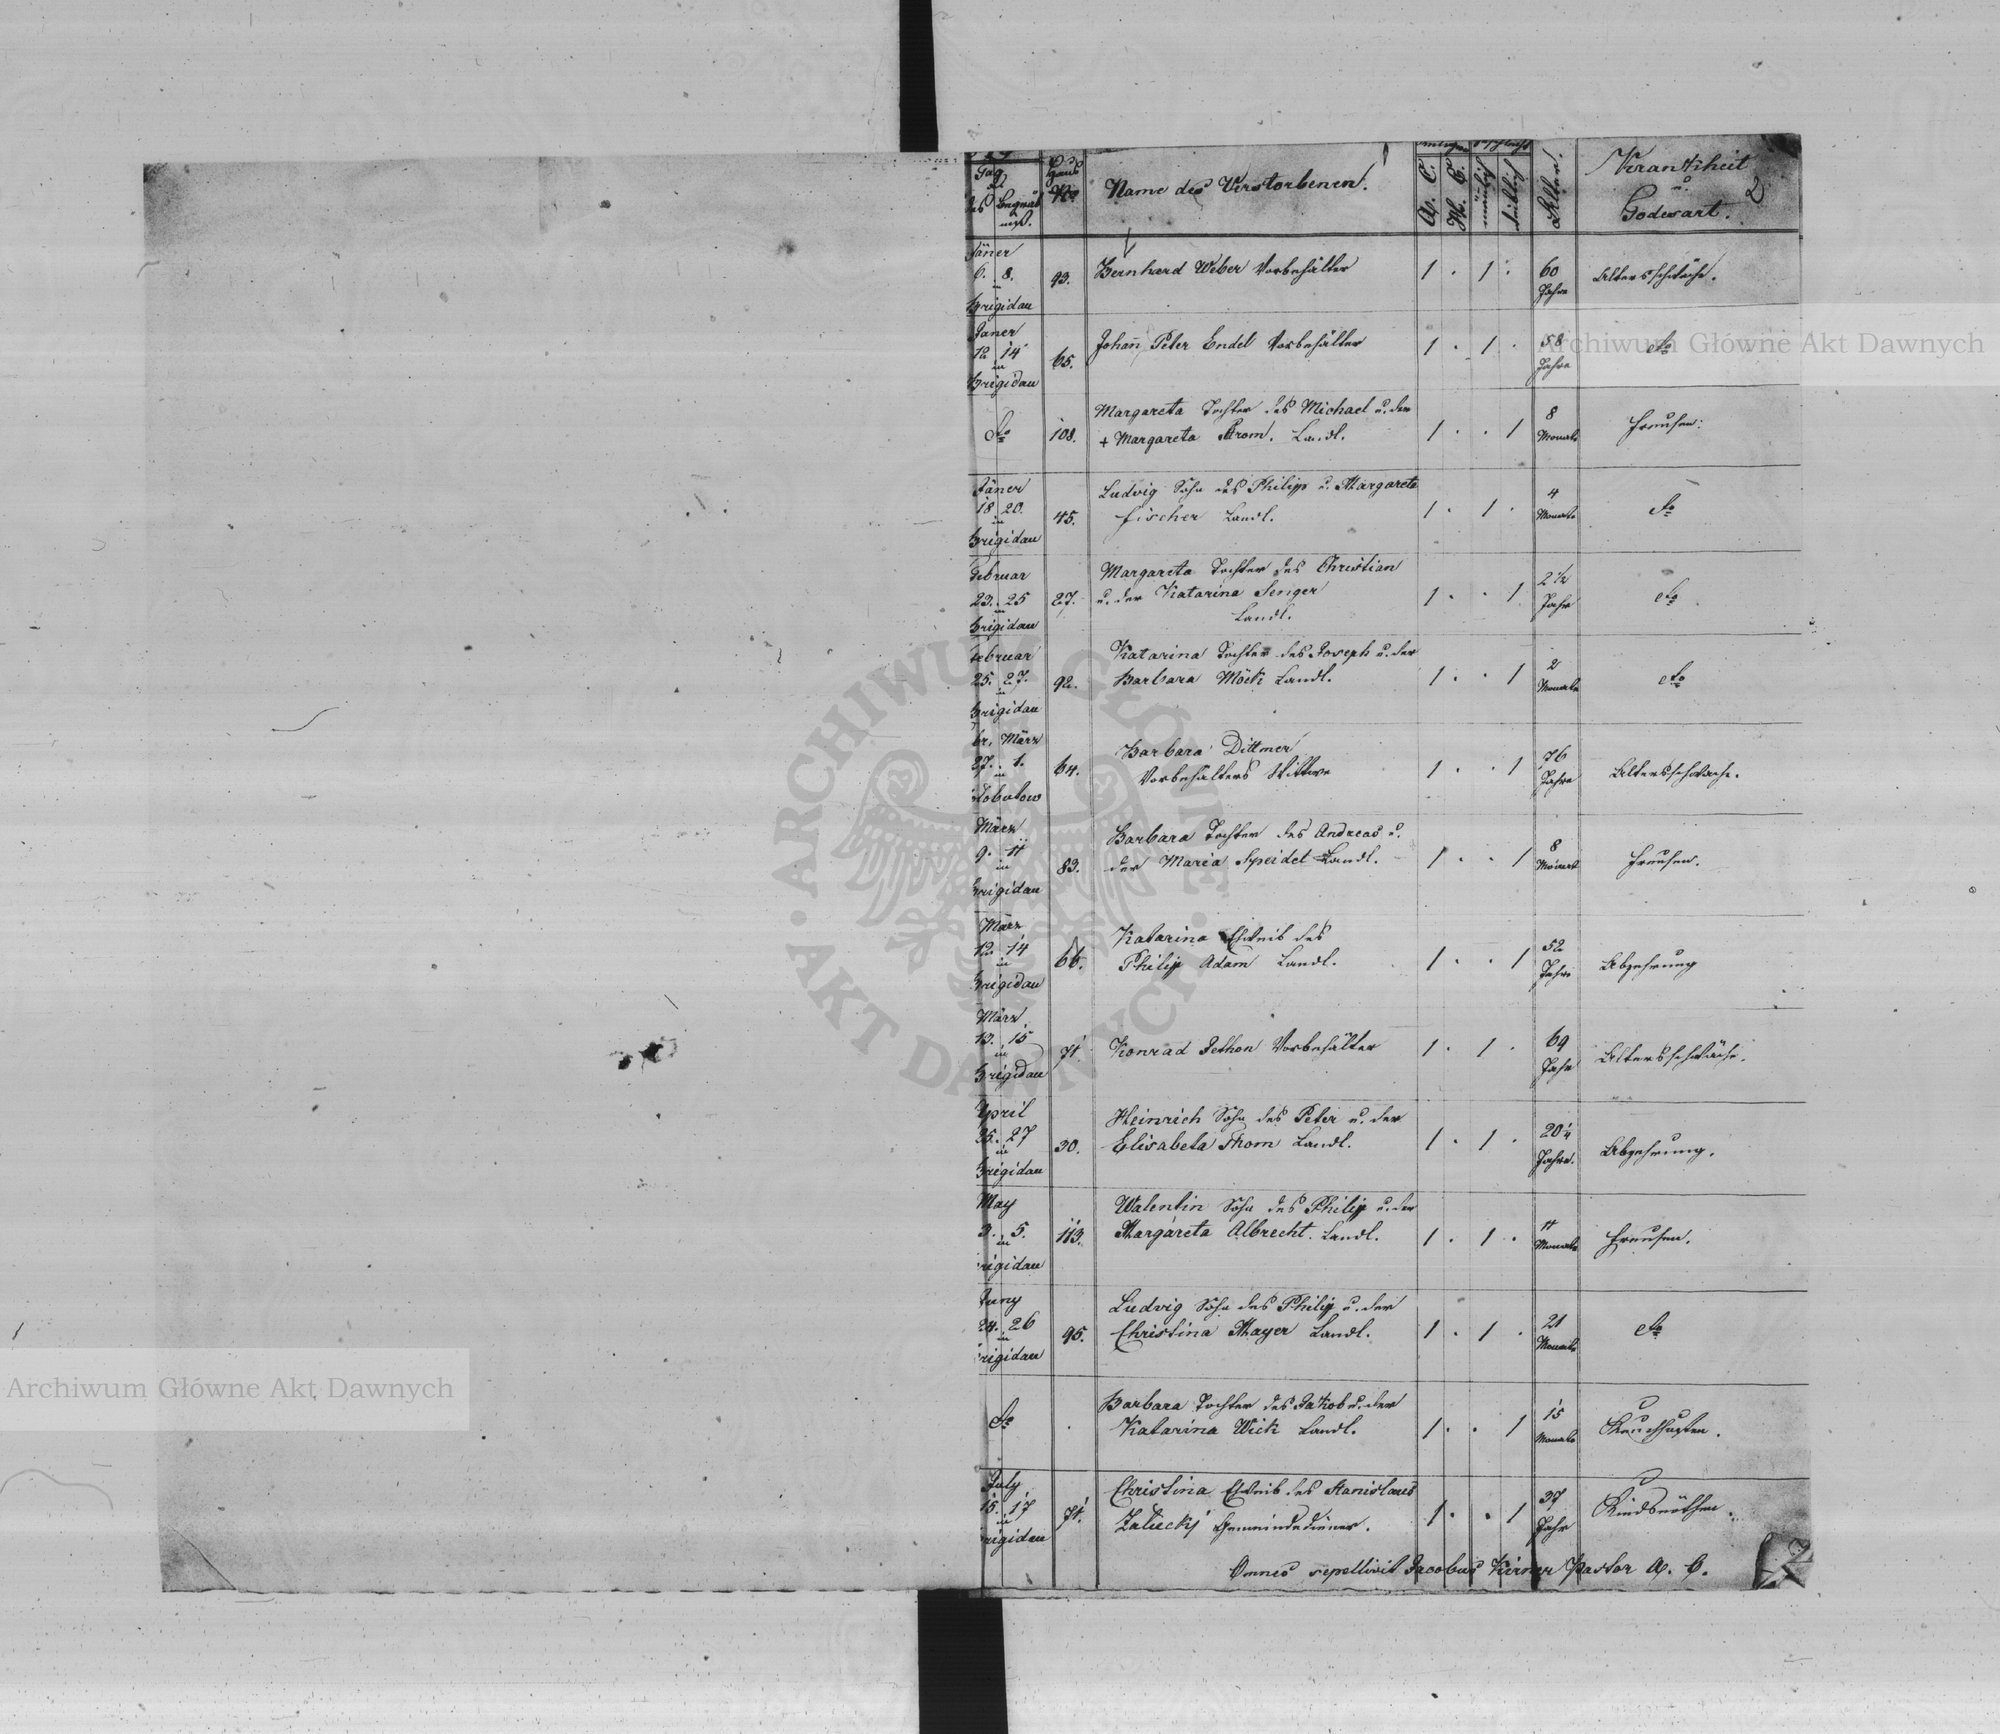 Tag
des Begräb
niß.
Haus
No
Name des Verstorbenen.
A. C.
H. C.
männlich
weiblich
Alter.
Krankheit
u.
Todesart.
2
Jäner
6. 8.
in
Brigidau
93.
Bernhard Weber Vorbehälter
1 . 1 .
60
Jahre
Altersschwäche.
Janer
12 14
in
Brigidau
65.
Johann Peter Endel Vorbehälter
1 . 1 .
58
Jahre
dto
dto
108.
Margareta Tochter des Michael u. der
+ Margareta Krom. Landl.
1 . . 1
8
Monate
Freusen.
Jäner
18 20.
in
Brigidau
45.
Ludvig Sohn des Philipp u. Margareta
Fischer Landl.
1 . 1 .
4
Monate
dto
Februar
23. 25
in
Brigidau
27.
Margareta Tochter des Christian
u. der Katarina Senger
Landl.
1 . . 1
2 1/2
Jahr
dto
Februar
25. 27.
in
Brigidau
92.
Katarina Tochter des Joseph u. der
Barbara Möck Landl.
1 . . 1
2
Monate
dto
br. März
27. 1.
in
64.
Barbara Dittmer
Vorbehälters Wittwe
1 . . 1
76
Jahre
Altersschwäche.
März
9. 11
in
Brigidau
83.
Barbara Tochter des Andreas u.
der Maria Speidel Landl.
1 . . 1
8
Monate
Freusen.
März
12 14
in
Brigidau
66.
Katarina Eheweib des
Philip Adam Landl.
1 . . 1
52
Jahre
Abzehrung
März
13. 15
in
Brigidau
71.
Konrad Jethon Vorbehälter
1 . 1 .
69
Jahr
Altersschwäche.
April
25. 27
in
Brigidau
30.
Heinrich Sohn des Peter u. der
Elisabeta Thom Landl.
1 . 1 .
20 1/4
Jahre.
Abzehrung.
May
3. 5.
in
rigidau
113.
Walentin Sohn des Philip u. der
Margareta Albrecht. Landl.
1 . 1 .
11
Monate
Freusen.
Juny
24. 26
in
rigidau
95.
Ludvig Sohn des Philip u. der
Christina Mayer Landl.
1 . 1 .
21
Monate
dto
dto
Barbara Tochter des Jakob u. der
Katarina Wick Landl.
1 . . 1
15
Monate
Keuchhusten.
July
15. 17
in
rigidau
71.
Christina Eheweib des Stanislaus
Zaliecki Gemeindediener.
1 . . 1
37
Jahr
Kindsnöthen.
Omnes sepellivit Jacobus Kirner Pastor A. C.
Archiwum Główne Akt Dawnych
Archiwum Główne Akt Dawnych
ARCHIWUM GŁÓWNE
AKT DAWNYCH